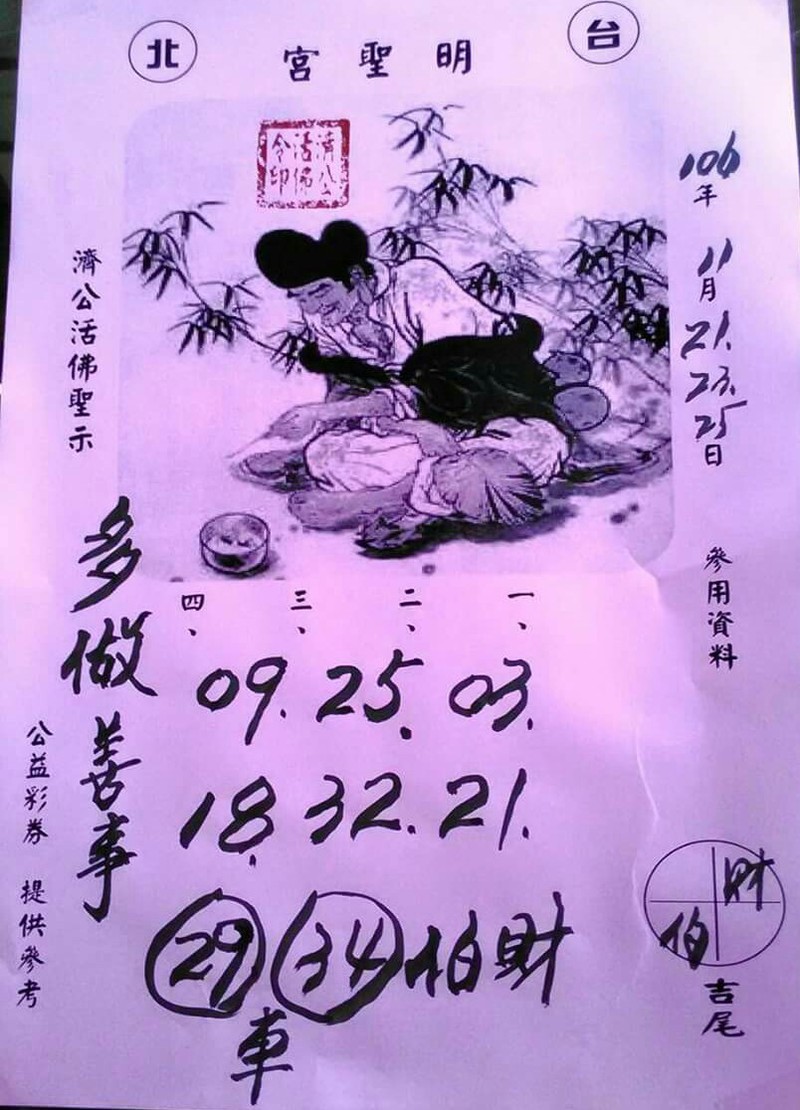 台北
明聖宮
濟公活佛令印
106年11月21.23.25日
參用資料
一、
二、
三、
四、
09. 25. 03.
18. 32. 21.
29 34 伯財
車
濟公活佛聖示
多做善事
公益彩券 提供參考
財
伯
吉尾